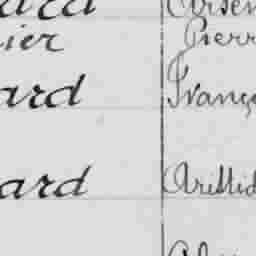 ard Arsen
ier Pierr
ard Franç
ard Aristid